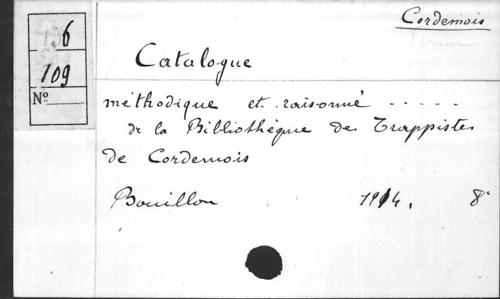 Cordemois
6
109
N°
Catalogue
méthodique et raisonné .....
de la Bibliothèque des Trappistes
de Cordemois
Bouillon 1914. 8°